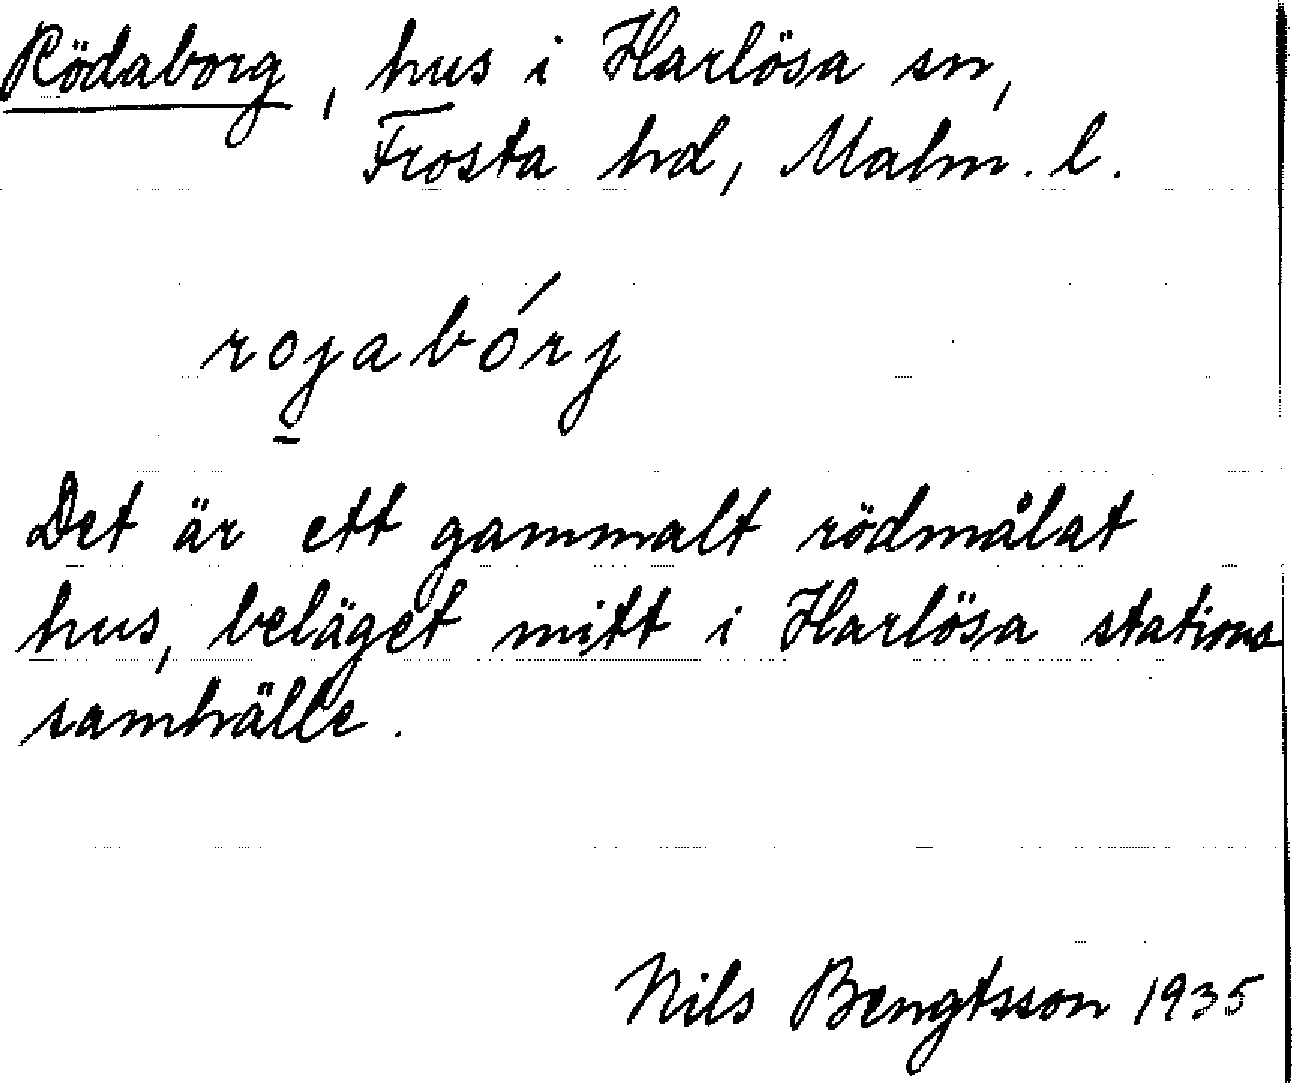 Rödaborg, hus i Harlösa sn,
Frosta hd, Malm. l.
rojabórj
Det är ett gammalt rödmålat
hus, beläget mitt i Harlösa stations
samhälle.
Nils Bengtsson 1935